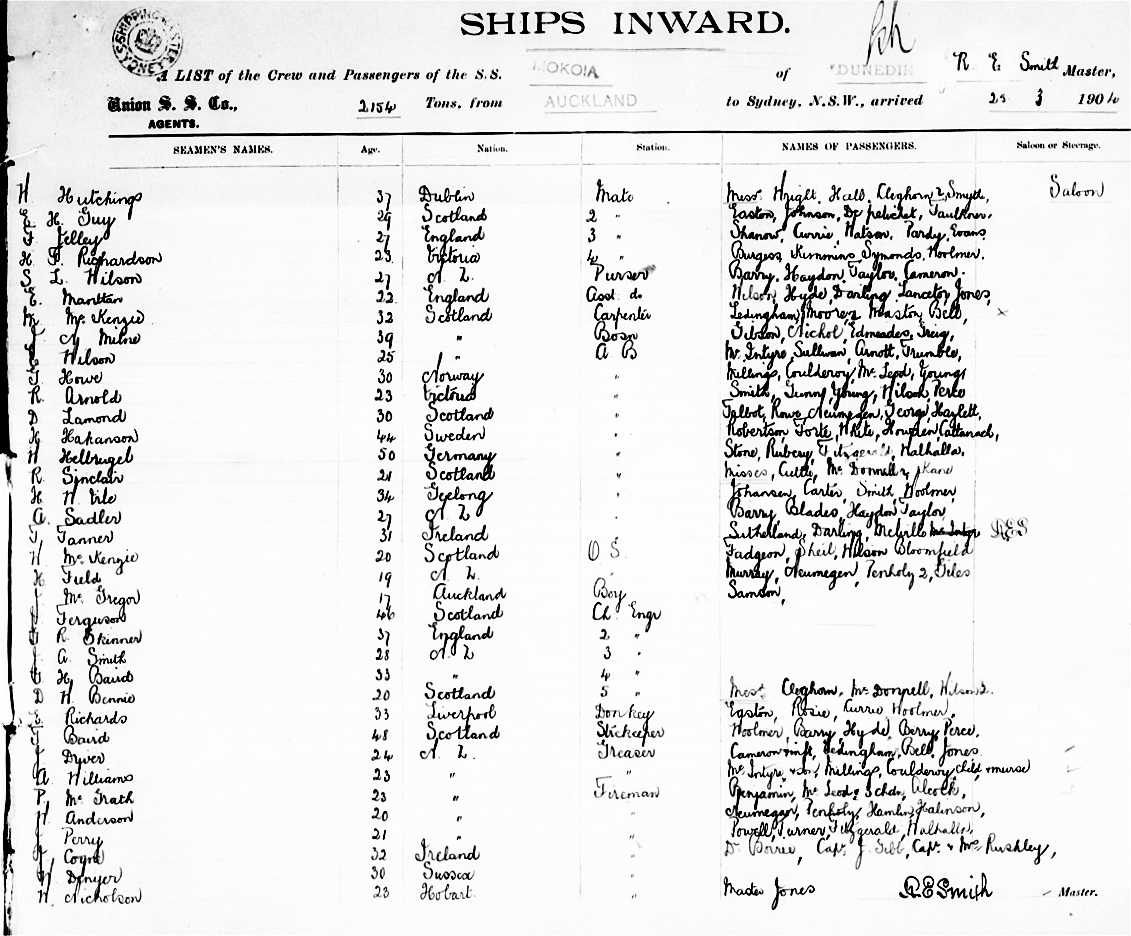 SHIPS INWARD.
A LIST of the Crew and Passengers of the S.S. MOKOIA of DUNEDIN R. E. Smith Master,
Union S. S. Co., AGENTS. 2154 Tons, from AUCKLAND to Sydney, N.S.W., arrived 190
SEAMEN'S NAMES. Age. Nation. Station. NAMES OF PASSENGERS. Saloon or Steerage.
H Hutchings 37 Dublin Mate Hall, Cleghorn 2, Smyth, Saloon
H. Guy 29 Scotland 2 " Easton, Johnson, Faulkner.
Jelley 27 England 3 " Currie, Watson, Pardy, Evans
Richardson 23 Victoria 4 " Burgess, Kimmins, Symonds, Woolmer.
L. Wilson 27 N. Z. Purser Barry, Haydon, Taylor, Cameron.
22 England Asst do Wilson, Hyde, Darling, Lancetor, Jones,
McKenzie 32 Scotland Carpenter Ledingham, Moore 2, Bell, x
Milne 39 " Bosn Gibson, Nichol, Edmeades, Greig,
Wilson 25 " A B McIntyre, Sullivan, Arnott, Trumble,
Howe 30 Norway " Millings, Coulderoy, McLeod, Young
R. Arnold 23 Victoria " Smith, Gunn, Young, Wilson, Perce
D Lamond 30 Scotland " Talbot, Rowe, Neumegen, George, Hazlett,
Hakanson 44 Sweden " Robertson, Forte, White, Howden, Cattanach,
50 Germany " Stone, Rubery, Fitzgerald, Walhalla,
R. Sinclair 21 Scotland " Misses, McDonnell 2, Kane
H. W. Vile 34 Geelong " Johansen, Carter, Smith, Woolmer,
A. Sadler 27 N. Z. " Barry, Blades, Haydon, Taylor,
Tanner 31 Ireland Sutherland, Darling, RES
H McKenzie 20 Scotland O S. Fadgeon, Sheil, Wilson, Bloomfield
H Field 19 N. Z. " Murray, Neumegen, Penholy 2, Giles
McGregor 17 Auckland Boy Samson,
Ferguson 46 Scotland Ch. Engr
R. Skinner 37 England 2 "
A. Smith 28 N. Z. 3 "
H. Baird 33 " 4 "
D H. Bennie 20 Scotland 5 " Cleghorn, McDonnell, Wilson 2.
Richards 33 Liverpool Donkey Easton, Rosie, Currie, Woolmer,
Baird 48 Scotland Storekeeper Woolmer, Barry, Hyde, Berry, Perce.
Dryer 24 N. Z. Greaser Cameron & inft, Ledingham, Bell, Jones
A. Williams 23 " " McIntyre, & son, Millings, Coulderoy, child & nurse
P. McGrath 23 " Fireman Benjamin, McLeod, Alcock,
Anderson 20 " " Neumegen, Penholy, Hamlin,
Perry 21 " " Powell, Turner, Fitzgerald, Walhalla,
32 Ireland " Capt. J. Gibb, Capt. & Mrs Rushley,
Denyer 30 Sussex "
W. Nicholson 23 Hobart. " Master Jones R.E Smith Master.